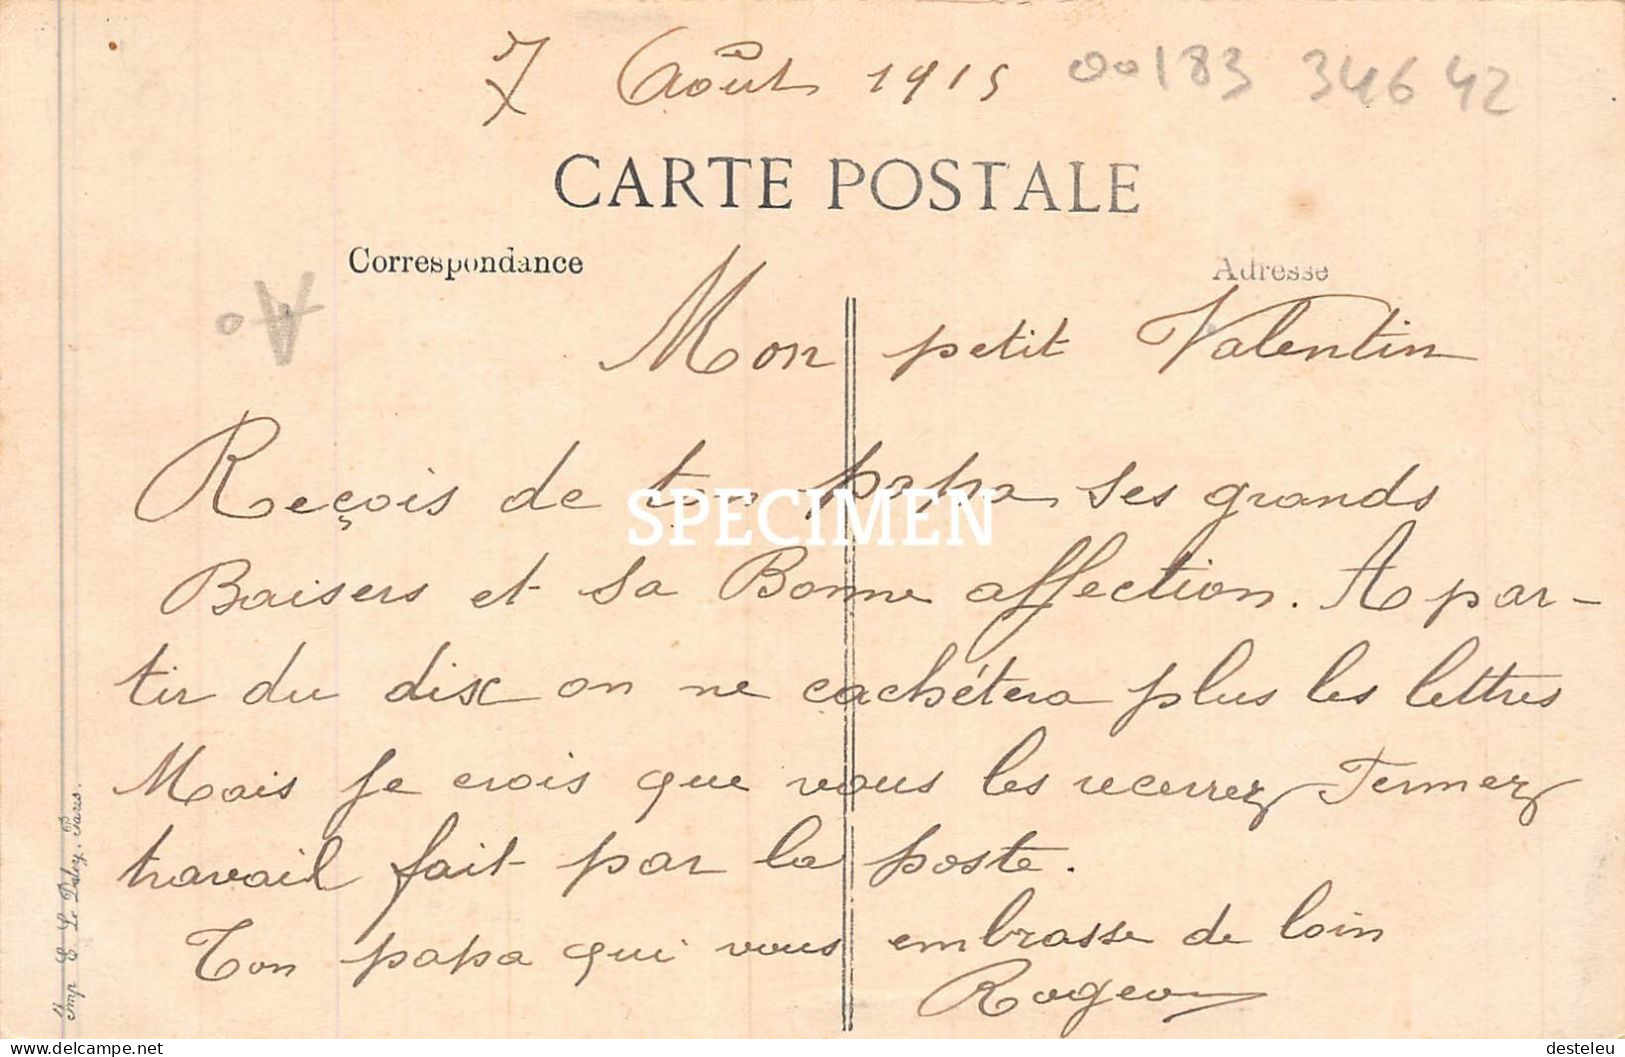 7 Août 1915 00183 34642
CARTE POSTALE
Correspondance
Adresse
Mon petit Valentin
Reçois de ton papa ses grands
Baisers et sa Bonne affection. A par-
tir du dix on ne cachétera plus les lettres
Mais je crois que vous les recerrez Fermez
travail fait par la poste.
Ton papa qui vous embrasse de loin
Rogeon
SPECIMEN
Imp E. Le Deley, Paris.
www.delcampe.net
desteleu